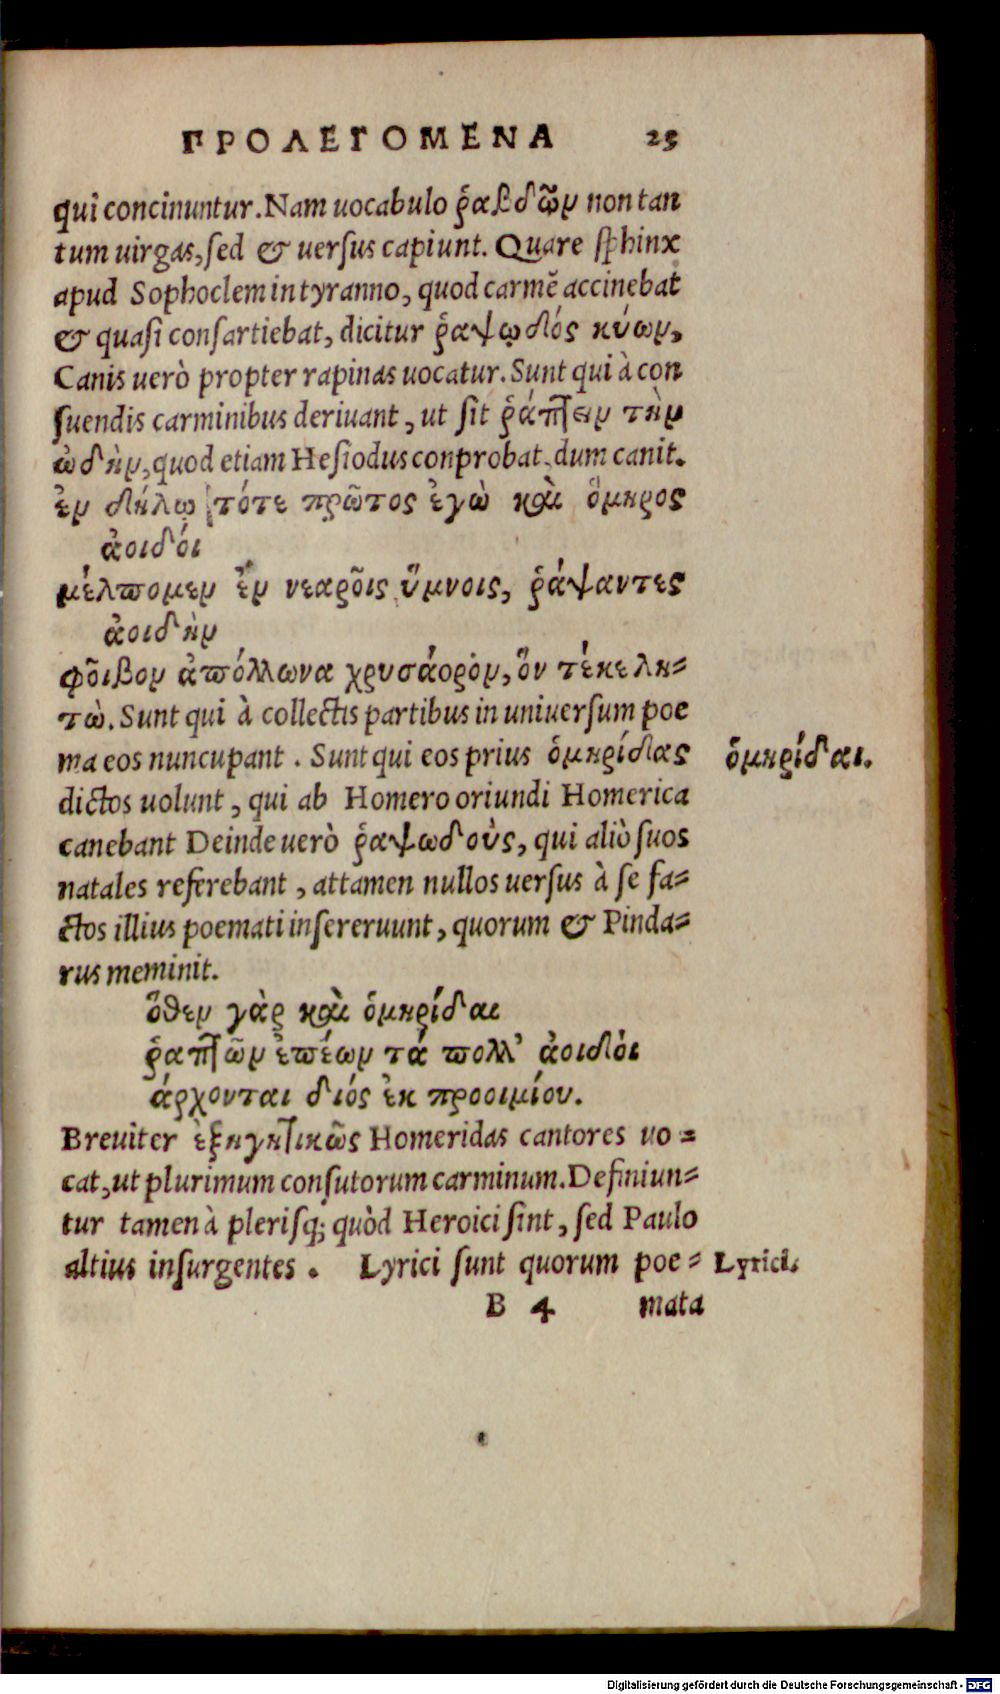 ΠΡΟΛΕΓΟΜΕΝΑ 23
qui concinuntur. Nam uocabulo ῥαβδῶν non tan
tum uirgas, sed & uersus capiunt. Quare sphinx
apud Sophoclem in tyranno, quod carmē accinebat
& quasi consartiebat, dicitur ῥαψῳδιός κύων,
Canis uerò propter rapinas uocatur. Sunt qui à con
suendis carminibus deriuant, ut sit ῥάπτειν τὴν
ὠδὴν, quod etiam Hesiodus conprobat, dum canit.
ἐν δήλῳ τότε πρῶτος ἐγὼ καὶ ὅμηρος
ἀοιδόι
μέλπομεν ἐν νεαρο͂ις ὕμνοις, ῥάψαντες
ἀοιδὴν
φο͂ιβον ἀπόλλωνα χρυσάορὸν, ὃν τέκε λη-
τὼ. Sunt qui à collectis partibus in uniuersum poe
ma eos nuncupant. Sunt qui eos prius ὁμηρίδας
ὁμηρίδαι.
dictos uolunt, qui ab Homero oriundi Homerica
canebant Deinde uerò ῥαψωδοὺς, qui aliò suos
natales referebant, attamen nullos uersus à se fa-
ctos illius poemati insereruunt, quorum & Pinda-
rus meminit.
ὅθεν γὰρ καὶ ὁμηρίδαι
ῥαπτῶν ἐπέων τά πολλ' ἀοιδὸι
άρχονται διός ἐκ προοιμίου.
Breuiter ἐξηγητικῶς Homeridas cantores uo-
cat, ut plurimum consutorum carminum. Definiun-
tur tamen à plerisq; quòd Heroici sint, sed Paulo
altius insurgentes. Lyrici sunt quorum poe-
Lyrici.
B 4 mata
Digitalisierung gefördert durch die Deutsche Forschungsgemeinschaft - DFG